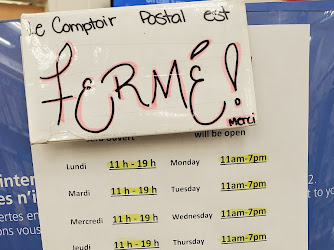 Le Comptoir Postal est
FERMÉ!
Merci
sera ouvert
will be open
Lundi 11 h - 19 h Monday 11am-7pm
Mardi 11 h - 19 h Tuesday 11am-7pm
Mercredi 11 h - 19 h Wednesday 11am-7pm
Jeudi 11 h - 19 h Thursday 11am-7pm